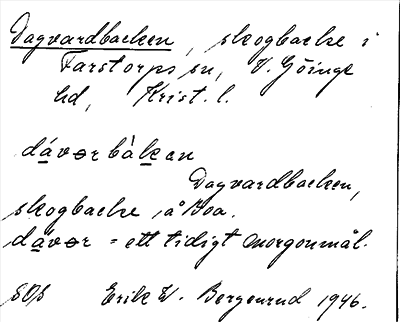 Dagvardbacken, skogbacke i
Farstorps sn, V. Göinge
hd, Krist. l.
dávərbàkən
Dagvardbacken,
skogbacke, å Boa.
davər = ett tidigt morgonmål.
SOS Erik W. Bergenrud 1946.